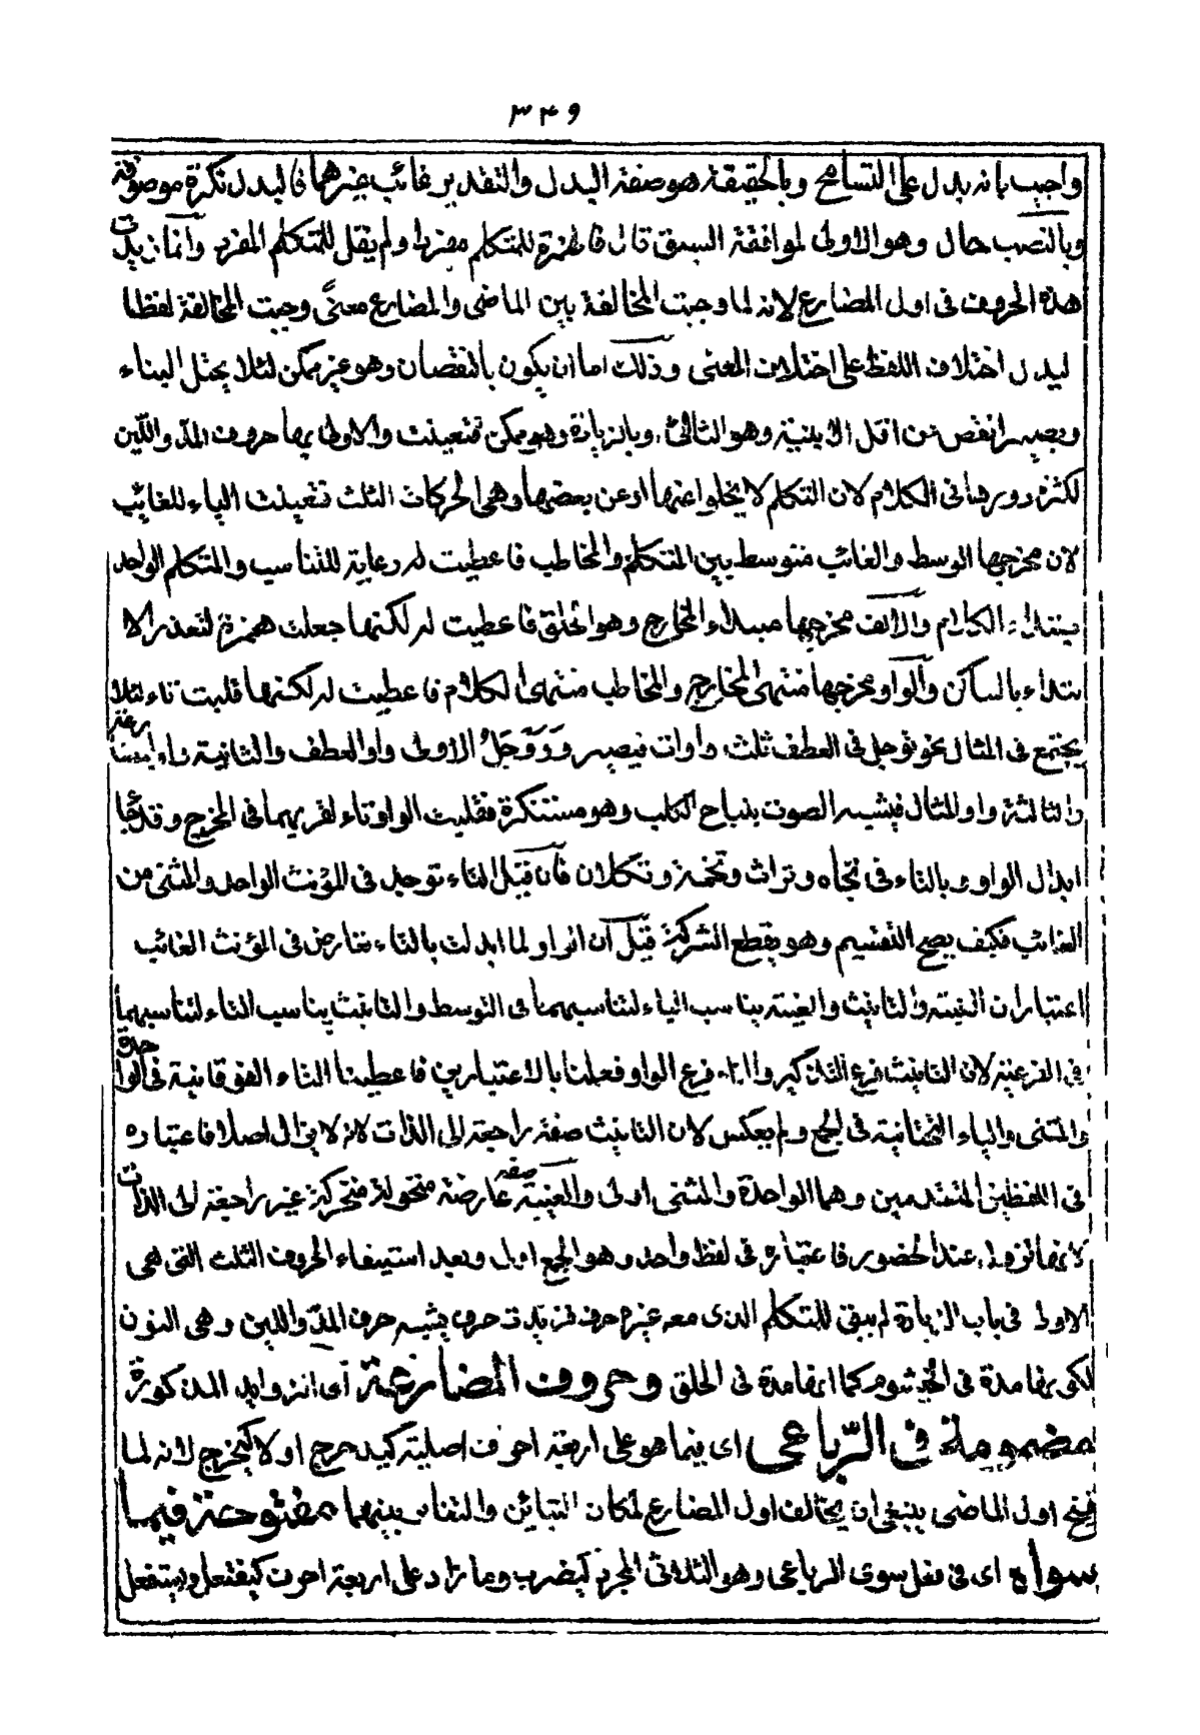 ٣٤٩
واجيب بانه بدل على التسامح وبالحقيقة هو صفة البدل والتقدير غائب غيرهما فالبدل نكرة موصوفة
وبالنصب حال وهو الاولى لموافقة السبق قال فالهمزة للمتكلم مفردا ولم يقل للمتكلم المفرد وانما زيدت
هذه الحروف فى اول المضارع لانه لما وجبت المخالفة بين الماضى والمضارع معنًى وجبت المخالفة لفظا
ليدل اختلاف اللفظ على اختلاف المعنى وذلك اما ان يكون بالنقصان وهو غير ممكن لئلا يختل البناء
ويصير انقص من اقل الابنية وهو الثلاثى وبالزيادة وهو ممكن فتعينت والاولى بها حروف المد واللين
لكثرة دورها فى الكلام لان التكلم لا يخلو اعنها او عن بعضها وهى الحركات الثلث فتعينت الياء للغائب
لان مخرجها الوسط والغائب متوسط بين المتكلم والمخاطب فاعطيت له رعاية للتناسب والمتكلم الواحد
يبتداء الكلام والالف مخرجها مبداء المخارج وهو الحلق فاعطيت له لكنها جعلت همزة لتعذر الا
بتداء بالساكن والواو مخرجها منتهى المخارج والمخاطب منتهى الكلام فاعطيت له لكنها قلبت تاء لئلا
يجتمع فى المثال نحو توجل فى العطف ثلث واوات فيصير وَوَوْجَلُ الاولى واو العطف والثانية واو المضارعة
والثالثة واو المثال فيشبه الصوت بنباح الكلب وهو مستنكرة فقلبت الواو تاء لقربهما فى المخرج وقد جاء
ابدال الواو بالتاء فى تجاه وتراث وتخمة وتكلان فان قيل التاء توجد فى المؤنث الواحد والمثنى من
الغائب فكيف يصح التقسيم وهو يقطع الشركة قيل ان الواو لما ابدلت بالتاء تعارض فى المؤنث الغائب
اعتباران الغيبة والتانيث والغيبة يناسب الياء لتناسبهما فى التوسط والتانيث يناسب التاء لتناسبهما
فى الفرعية لان التانيث فرع التذكير والتاء فرع الواو فعملنا بالاعتبارين فاعطينا التاء الفوقانية فى الواحدة
والمثنى والياء التحتانية فى الجمع ولم يعكس لان التانيث صفة راجعة الى الذات لانه لا يزال اصلا فاعتباره
فى اللفظين المتقدمين وهما الواحدة والمثنى اولى والغيبة صفة عارضة متحولة متحركة غير راجعة الى الذات
لانها تزول عند الحضور فاعتباره فى لفظ واحد وهو الجمع اولى وبعد استيفاء الحروف الثلث التى هى
الاولى فى باب الزيادة لم يبق للمتكلم الذى معه غيره حرف فزيدت حرف يشبه حرف المد واللين وهى النون
لكونها مدة فى الخيشوم كما انها مدة فى الحلق وحروف المضارعة اى الزوايد المذكورة
مضمومة فى الرّباعى اى فيما هو على اربعة احرف اصلية كيدحرج او لا كيخرج لانه لما
فتح اول الماضى ينبغى ان يخالف اول المضارع لمكان التباين والتنافى بينهما مفتوحة فيما
سواه اى فى فعل سوى الرباعى وهو الثلاثى المجرد كيضرب وما زاد على اربعة احرف كيفتعل ويستفعل